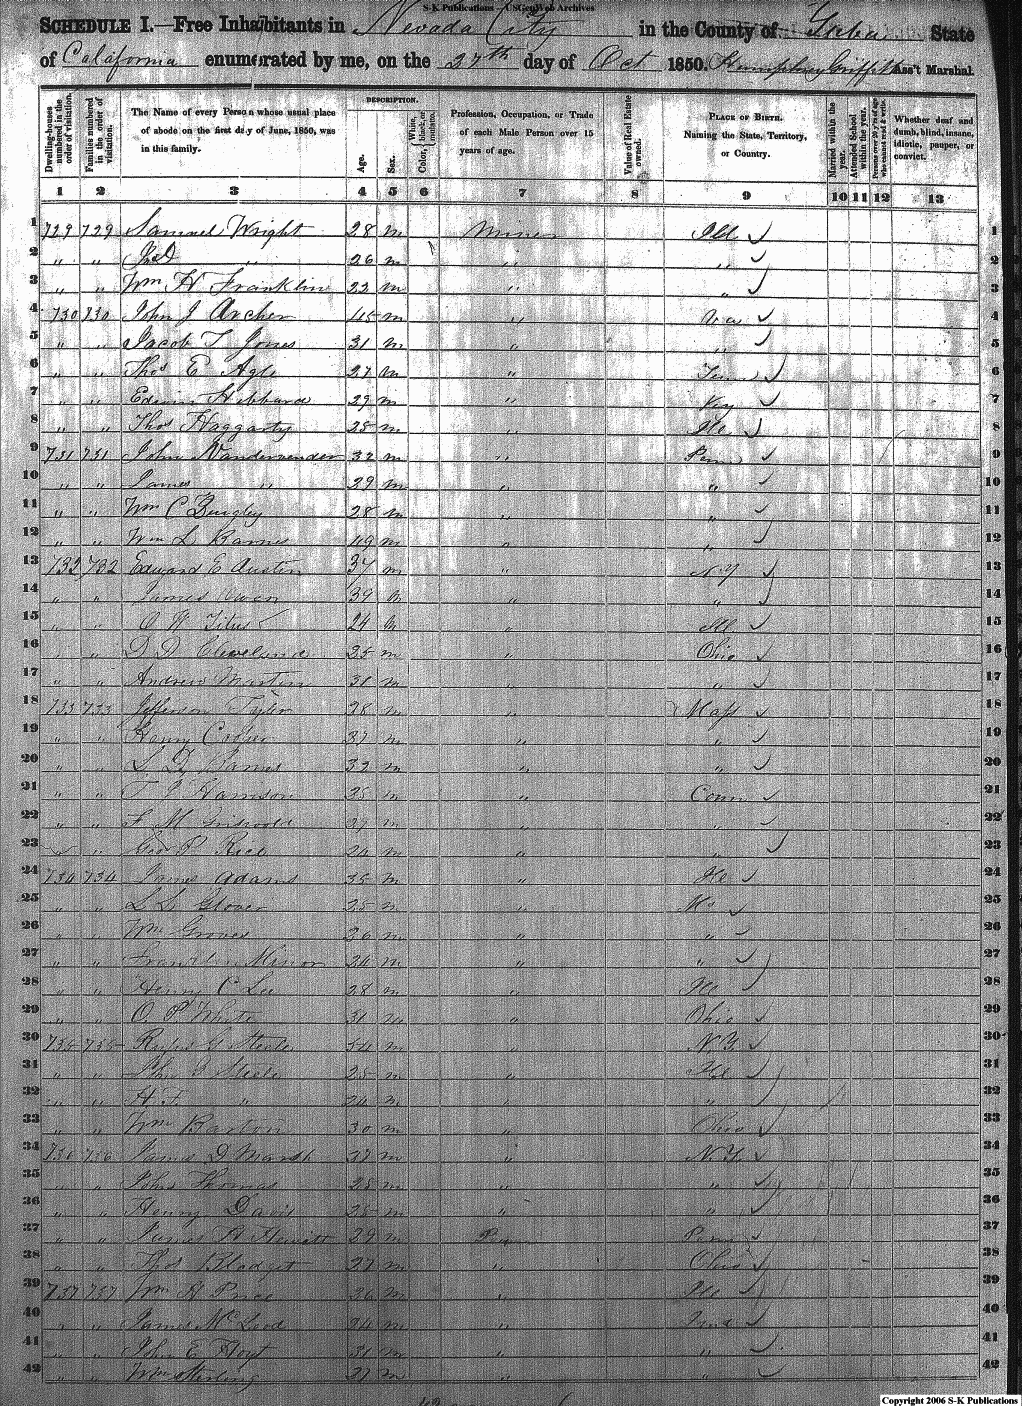 S-K Publications - USGenWeb Archives
SCHEDULE I.—Free Inhabitants in Nevada City in the County of Yuba State
of California enumerated by me, on the 27th day of Oct 1850. Humphrey Griffith Ass't Marshal.
Dwelling-houses numbered in the order of visitation. Families numbered in the order of visitation. The Name of every Person whose usual place of abode on the first day of June, 1850, was in this family. DESCRIPTION. Age. Sex. Color, White, black, or mulatto. Profession, Occupation, or Trade of each Male Person over 15 years of age. Value of Real Estate owned. PLACE OF BIRTH. Naming the State, Territory, or Country. Married within the year. Attended School within the year. Persons over 20 y'rs of age who cannot read & write. Whether deaf and dumb, blind, insane, idiotic, pauper, or convict.
1 2 3 4 5 6 7 8 9 10 11 12 13
1 729 729 Samuel Wright 28 m Miner Ill 1
2 " " " 26 m " " 2
3 " " Wm H Franklin 22 m " " 3
4 730 730 John J Archer 45 m " Va 4
5 " " Jacob T Jones 31 m " " 5
6 " " Thos E 27 m " Tenn 6
7 " " Edwin Hibbard 29 m " Ky 7
8 " " Thos Haggarty 25 m " Ill 8
9 731 731 John Vandervender 32 m " Penn 9
10 " " James " 29 m " " 10
11 " " Wm C 28 m " " 11
12 " " Wm L Barnes 49 m " " 12
13 732 732 Edward E Austin 37 m " N.Y 13
14 " " James Owen 39 m " " 14
15 " " O W Titus 24 m " Ill 15
16 " " D D Cleveland 25 m " Ohio 16
17 " " Andrew Martin 31 m " " 17
18 733 733 Jefferson Tyler 28 m " Mass 18
19 " " Henry 37 m " " 19
20 " " James 32 m " " 20
21 " " T J Harrison 25 m " Conn 21
22 " " M Griswold 27 m " " 22
23 " " Geo P Rice 24 m " " 23
24 734 734 James Adams 35 m " Ill 24
25 " " L L Glover 25 m " Mo 25
26 " " Wm Groves 26 m " " 26
27 " " Franklin Minor 24 m " " 27
28 " " Henry C Lee 28 m " Ill 28
29 " " O P White 31 m " Ohio 29
30 735 735 Rufus Steele 54 m " N.Y. 30
31 " " Steele 25 m " Ill 31
32 " " H F " 24 m " " 32
33 " " Wm Barton 30 m " Ohio 33
34 736 736 James D Marsh 27 m " N.Y. 34
35 " " John Thomas 25 m " " 35
36 " " Henry Davis 25 m " " 36
37 " " James H Hewitt 29 m Penn 37
38 " " Thos Blodget 27 m " Ohio 38
39 737 737 Wm H Price 26 m " Ill 39
40 " " James McLeod 24 m " Ind 40
41 " " John E Hoyt 31 m " " 41
42 " " Wm Sterling 27 m " " 42
Copyright 2006 S-K Publications